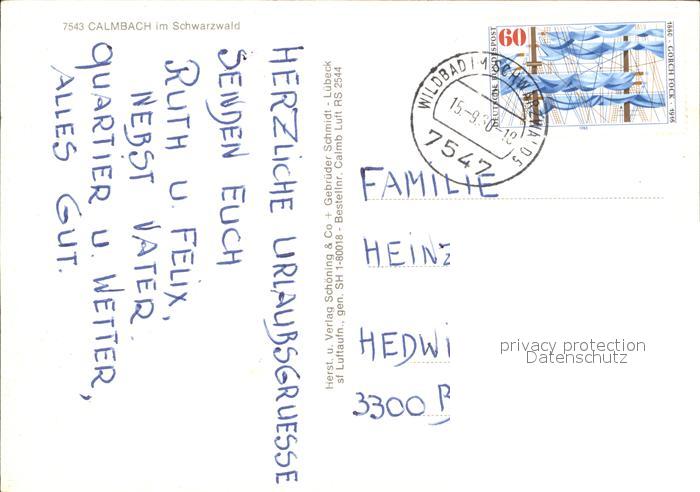 7543 CALMBACH im Schwarzwald
HERZLICHE URLAUBSGRUESSE
SENDEN EUCH
RUTH U. FELIX,
NEBST VATER.
QUARTIER U. WETTER,
ALLES GUT.
Herst. u. Verlag Schöning & Co + Gebrüder Schmidt - Lübeck
sf Luftaufn., gen. SH 1-80018 - Bestellnr. Calmb Luft RS 2544
60
DEUTSCHE BUNDESPOST
GORCH FOCK
1980
WILDBAD I M SCHWARZWALD
15.-9.80-18
7547
FAMILIE
HEINZ
HEDWI
3300 B
privacy protection
Datenschutz